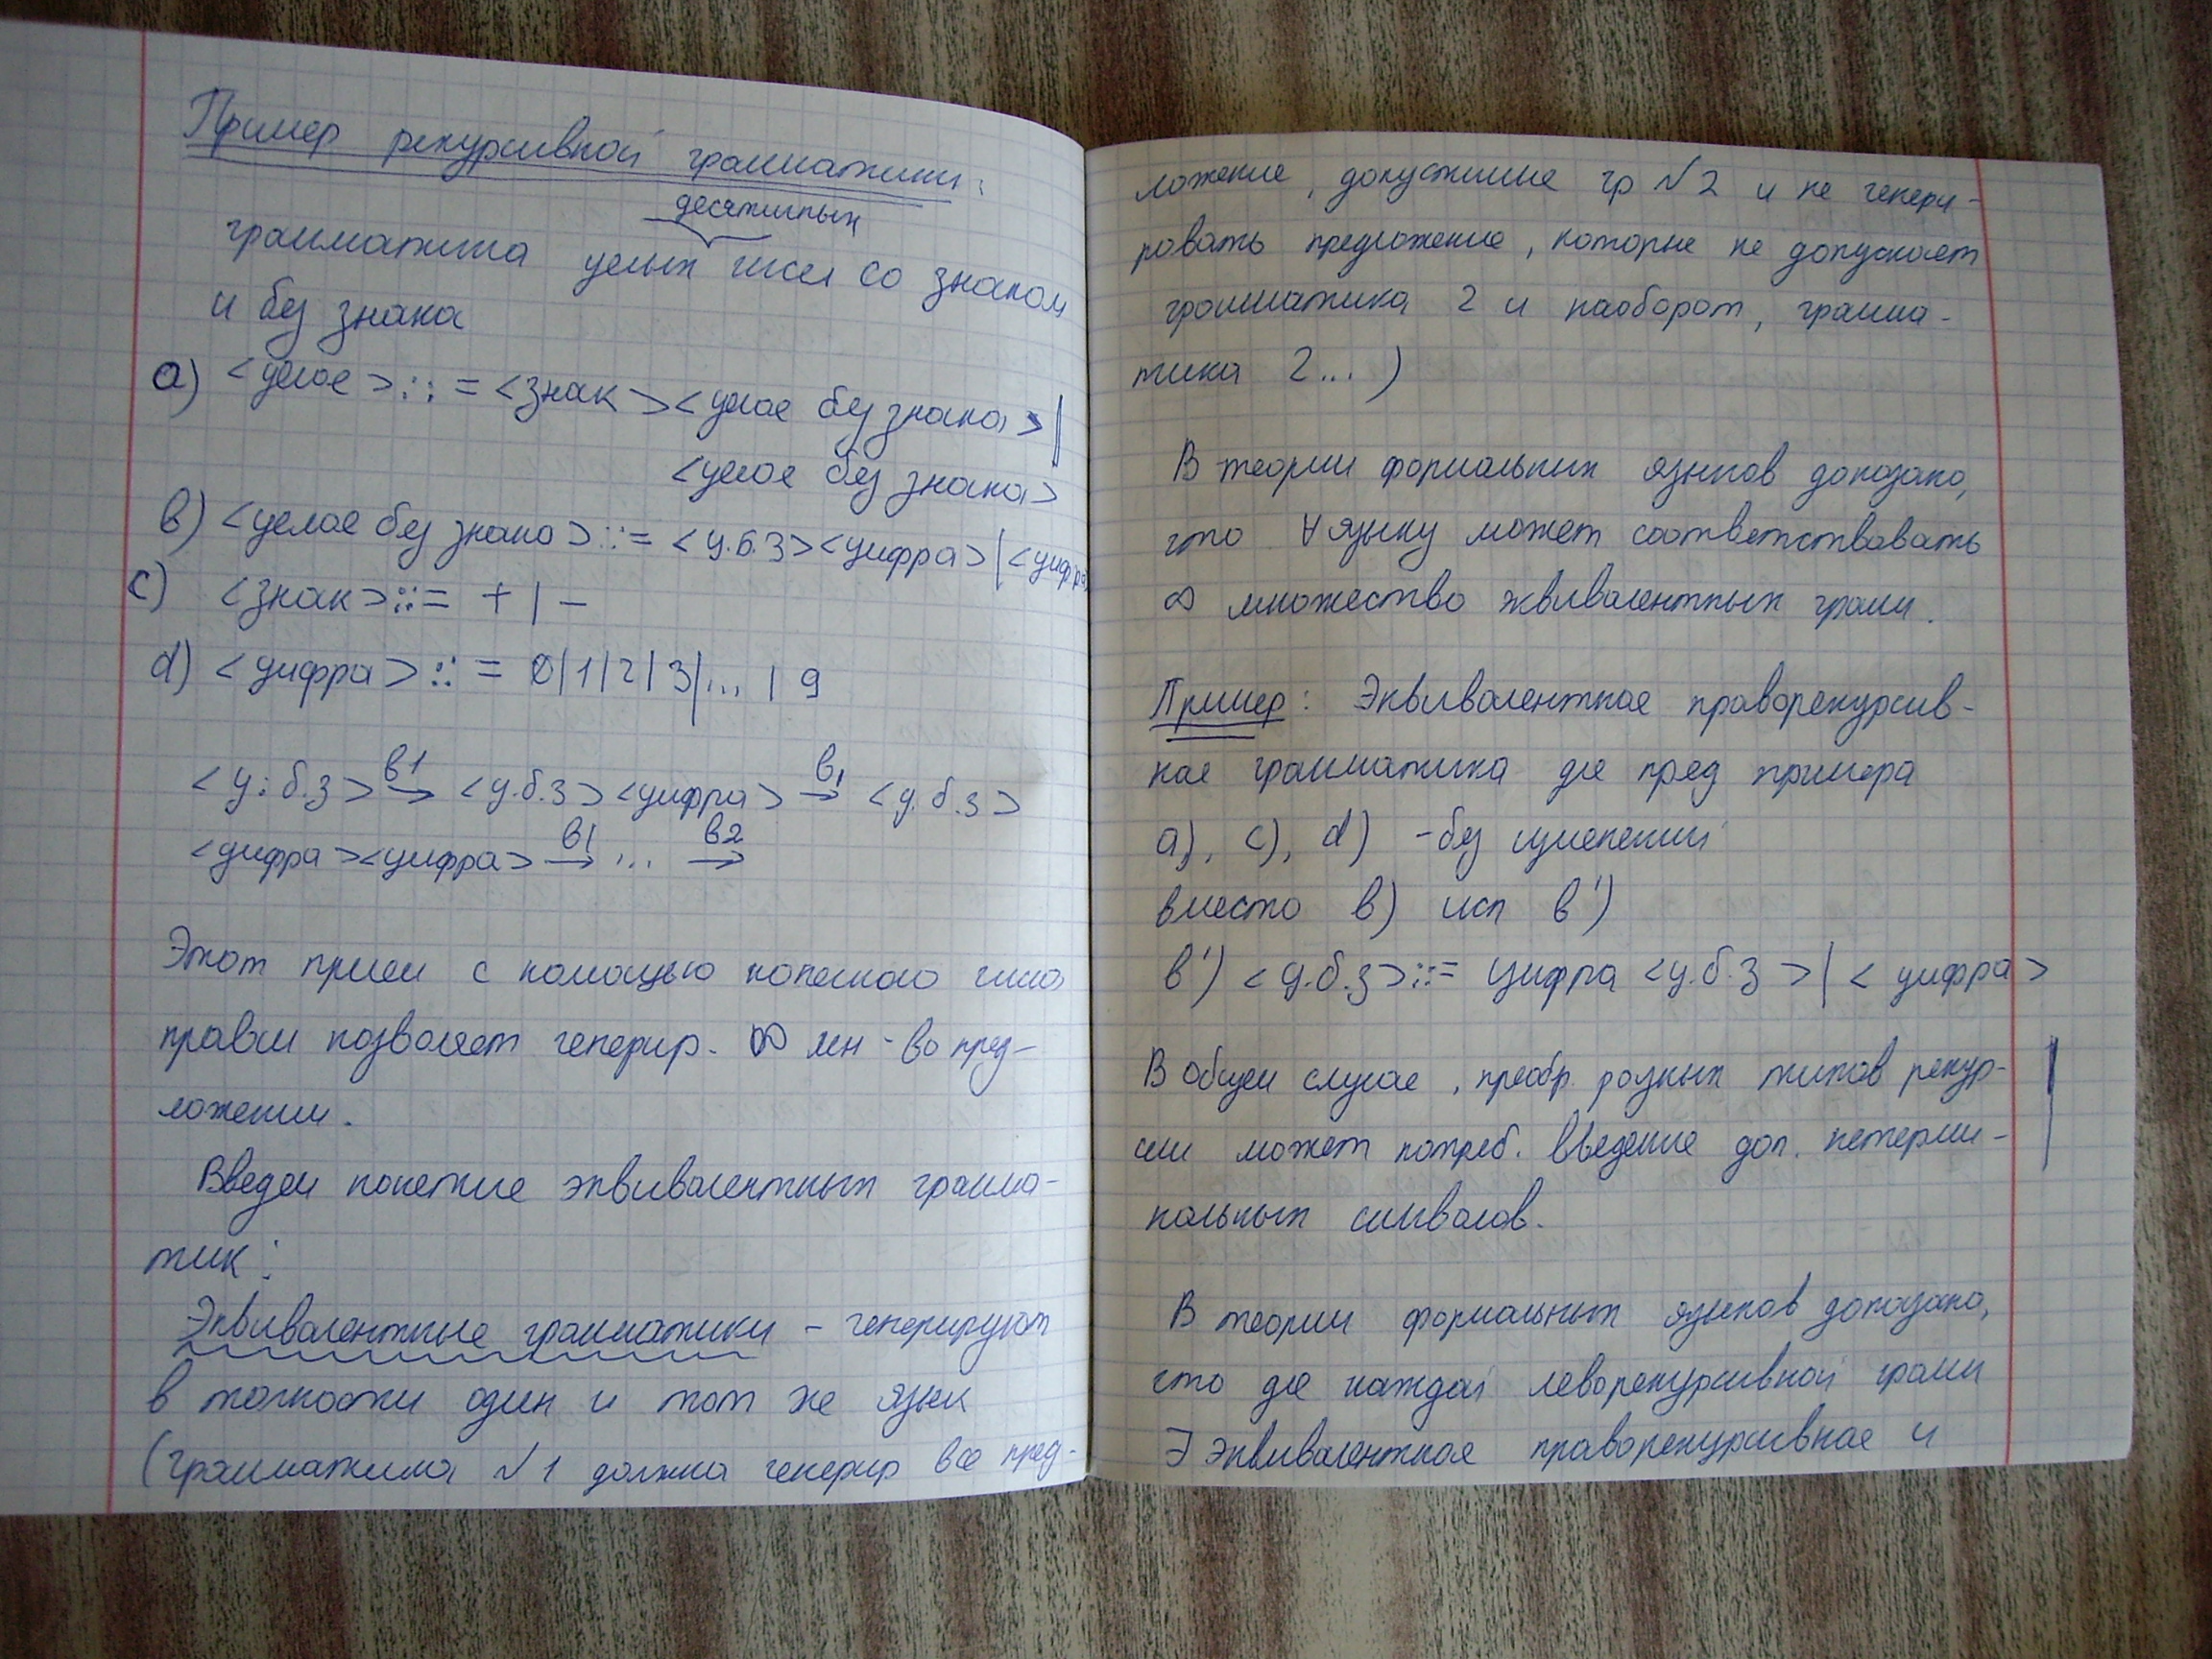 Пример рекурсивной грамматики:
десятичных
грамматика целых чисел со знаком
и без знака
а) <целое>::=<знак><целое без знака>|
<целое без знака>
в) <целое без знака>::= <ц.б.з><цифра>|<цифра
с) <знак>::= + | −
d) <цифра>::= 0|1|2|3|... | 9
<ц.б.з> в1→ <ц.б.з><цифра> в1→ <ц.б.з>
<цифра><цифра> в1→ ... в2→
Этот прием с помощью конечного числа
правил позволяет генерир. ∞ мн-во пред-
ложений.
Введем понятие эквивалентных грамма-
тик:
Эквивалентные грамматики – генерируют
в точности один и тот же язык
(грамматика №1 должна генерир все пред-
ложение, допустимые гр №2 и не генери-
ровать предложение, которые не допускает
грамматика 2 и наоборот, грамма-
тика 2...)
В теории формальных языков доказано,
что ∀ языку может соответствовать
∞ множество эквивалентных грамм.
Пример: Эквивалентная праворекурсив-
ная грамматика для пред примера
а), с), d) - без изменений
вместо в) исп в')
в') <ц.б.з>::= цифра <ц.б.з>|< цифра>
В общем случае, преобр. разных типов рекур-
сии может потреб. введение доп. нетерми-
нальных символов.
В теории формальных языков доказано,
что для каждой леворекурсивной грамм
∃ эквивалентная праворекурсивная и